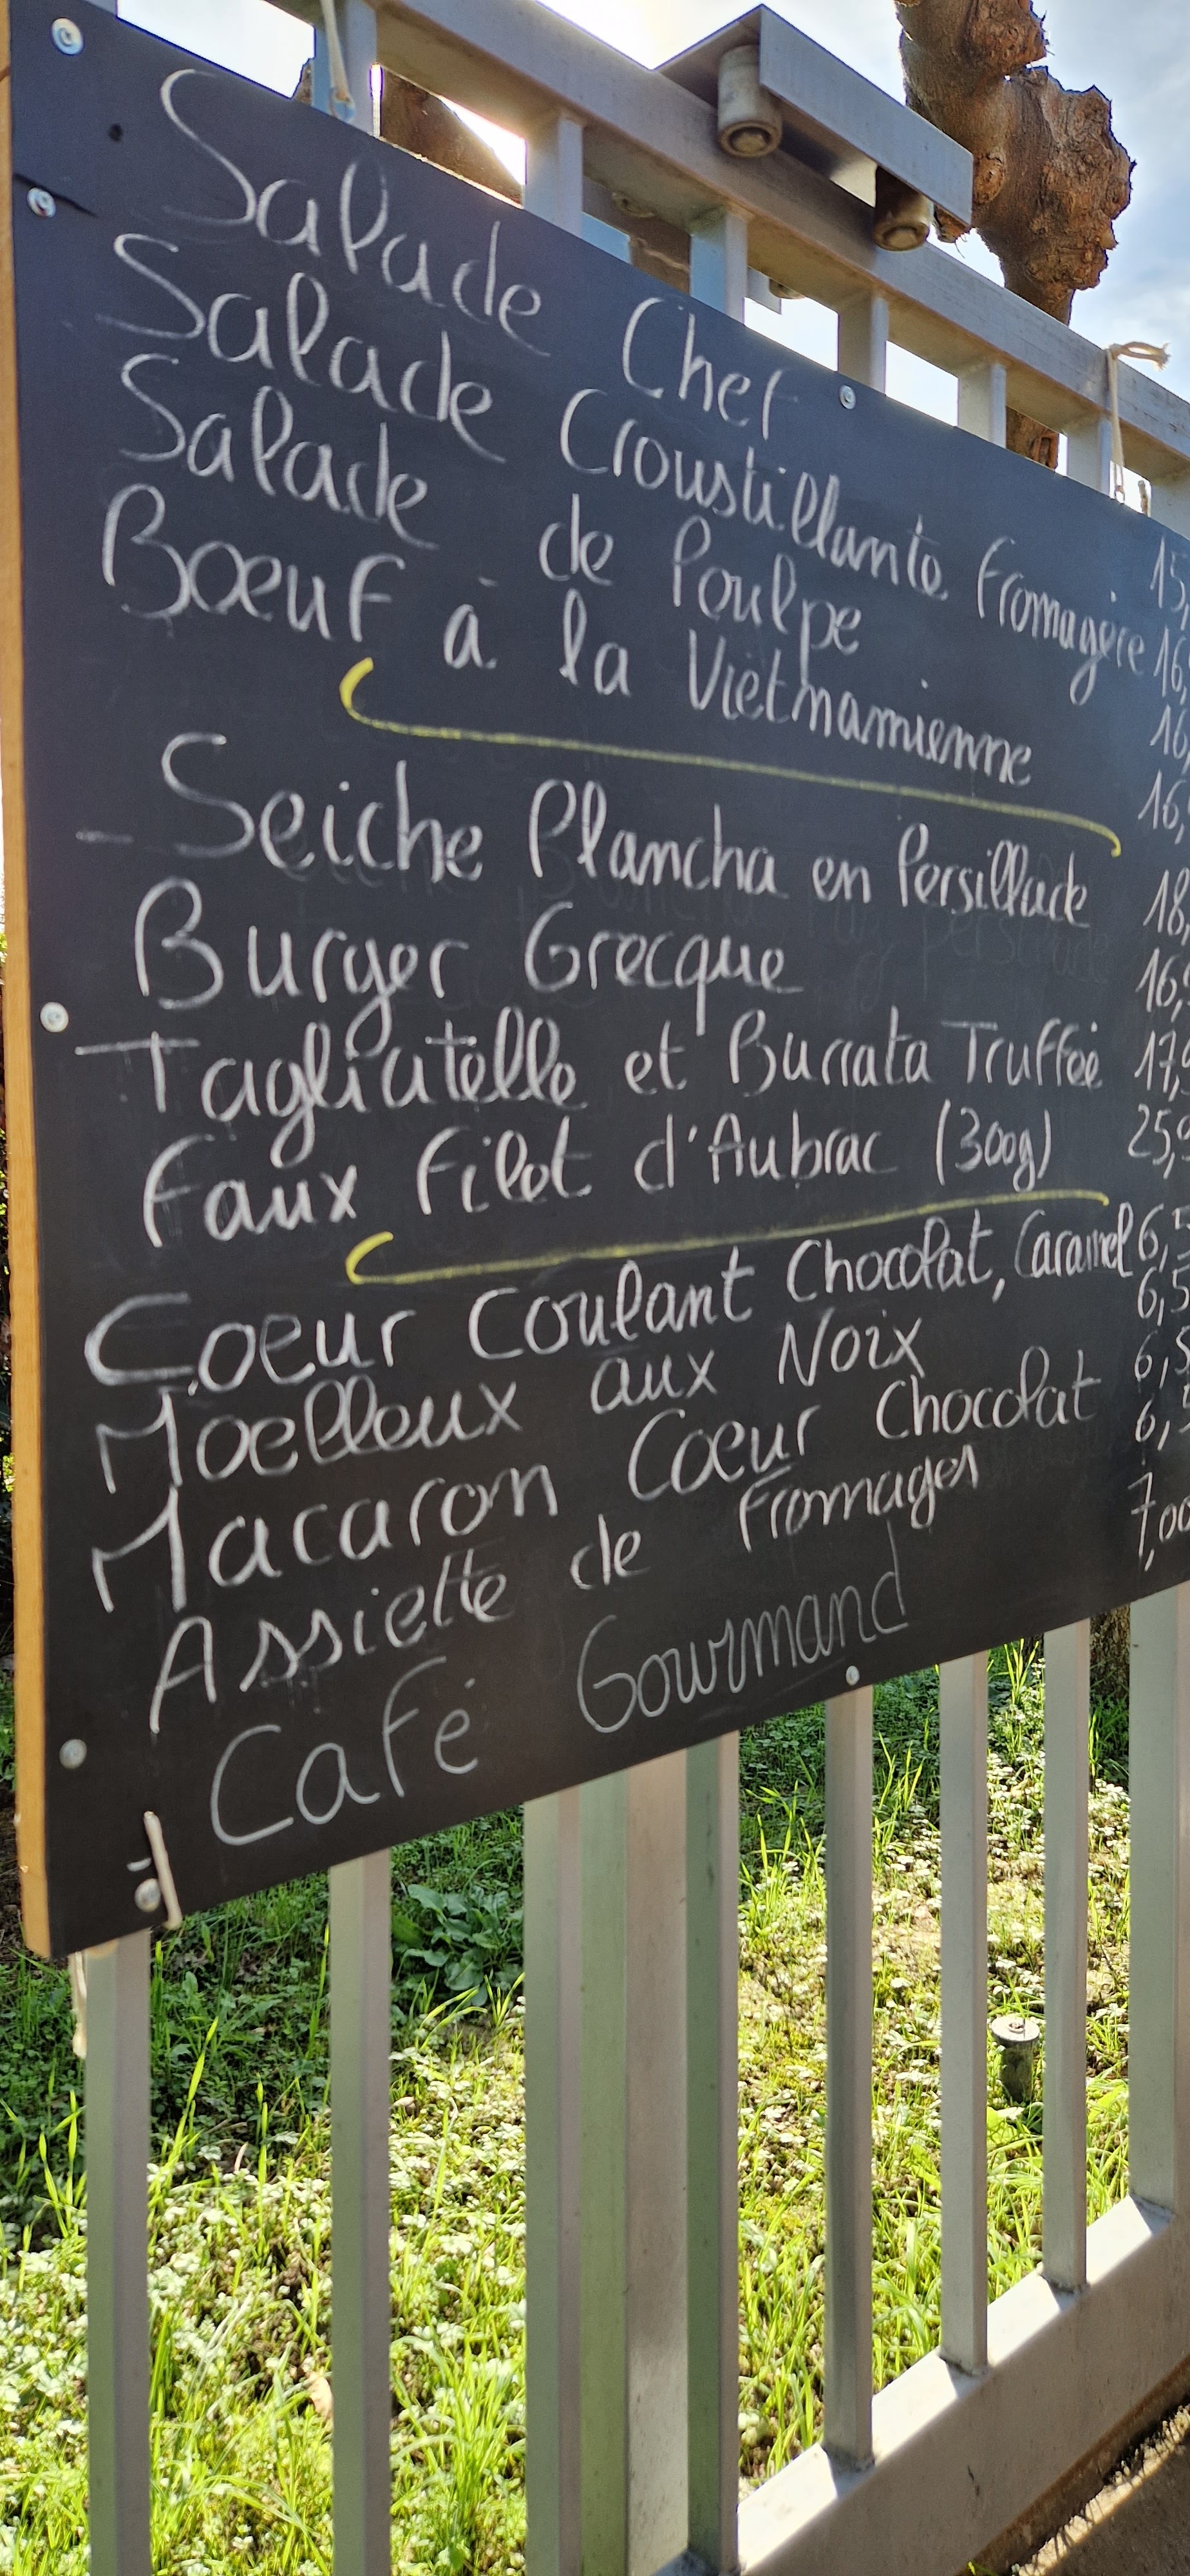 Salade Chef 15,
Salade Croustillante Fromagère 16,
Salade de Poulpe 16,
Boeuf à la Vietnamienne 16,9
Seiche Plancha en Persillade 18,
Burger Grecque 16,9
Tagliatelle et Burrata Truffée 17,9
Faux Filet d'Aubrac (300g) 25,9
Coeur Coulant Chocolat, Caramel 6,5
Moelleux aux Noix 6,5
Macaron Coeur Chocolat 6,5
Assiette de Fromages 6,5
Café Gourmand 7,00